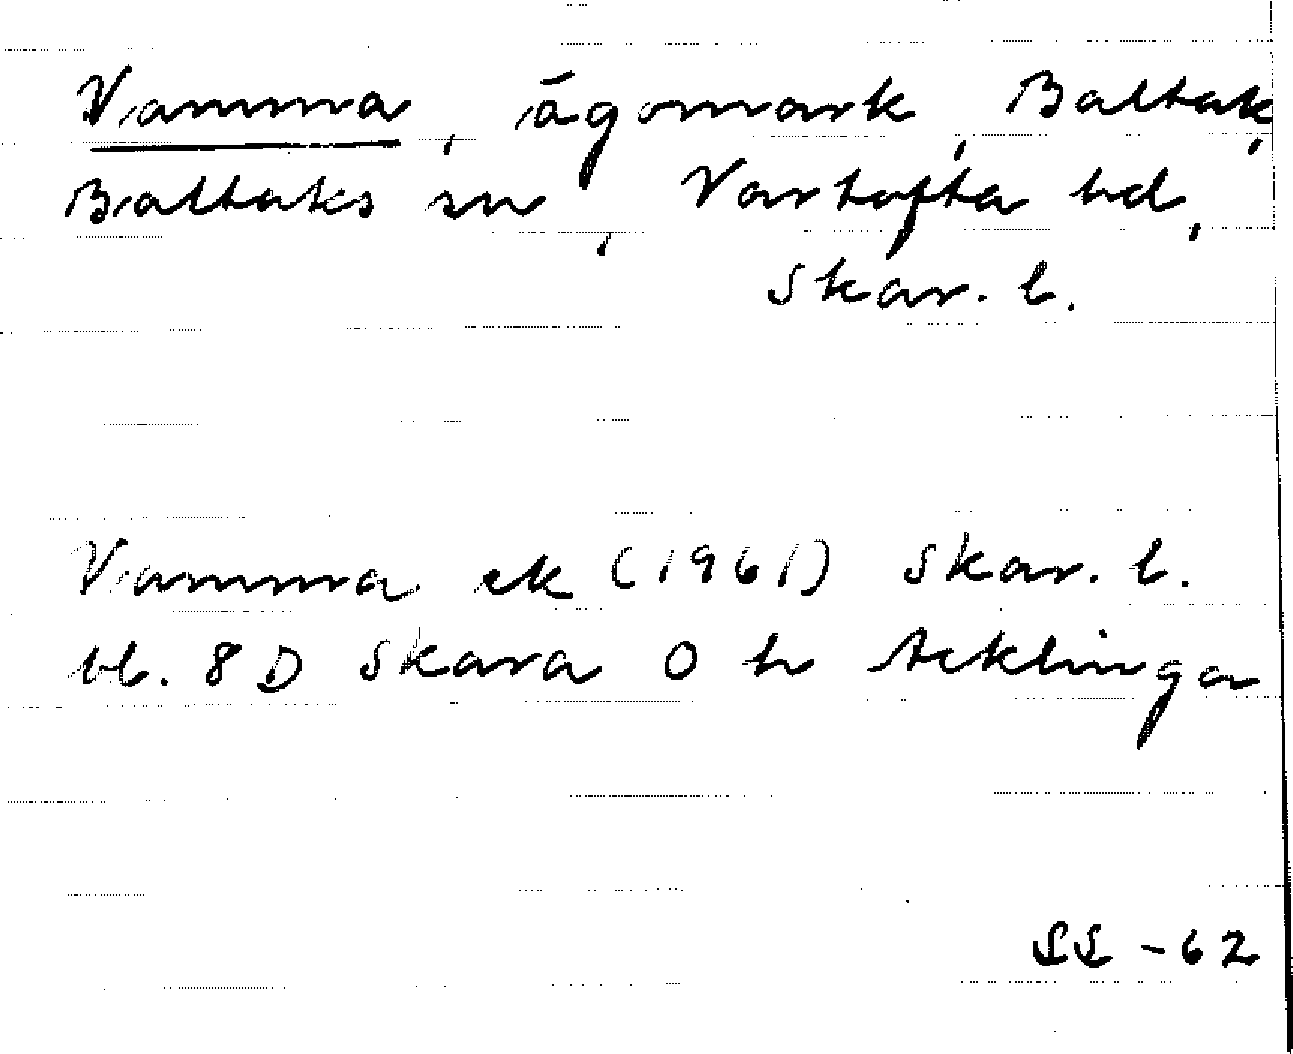 Vamma, ägomark, Baltak,
Baltaks sn, Vartofta hd,
Skar. l.
Vamma ek (1961) Skar. l.
bl. 8 D Skara O h Acklinga
SL -62